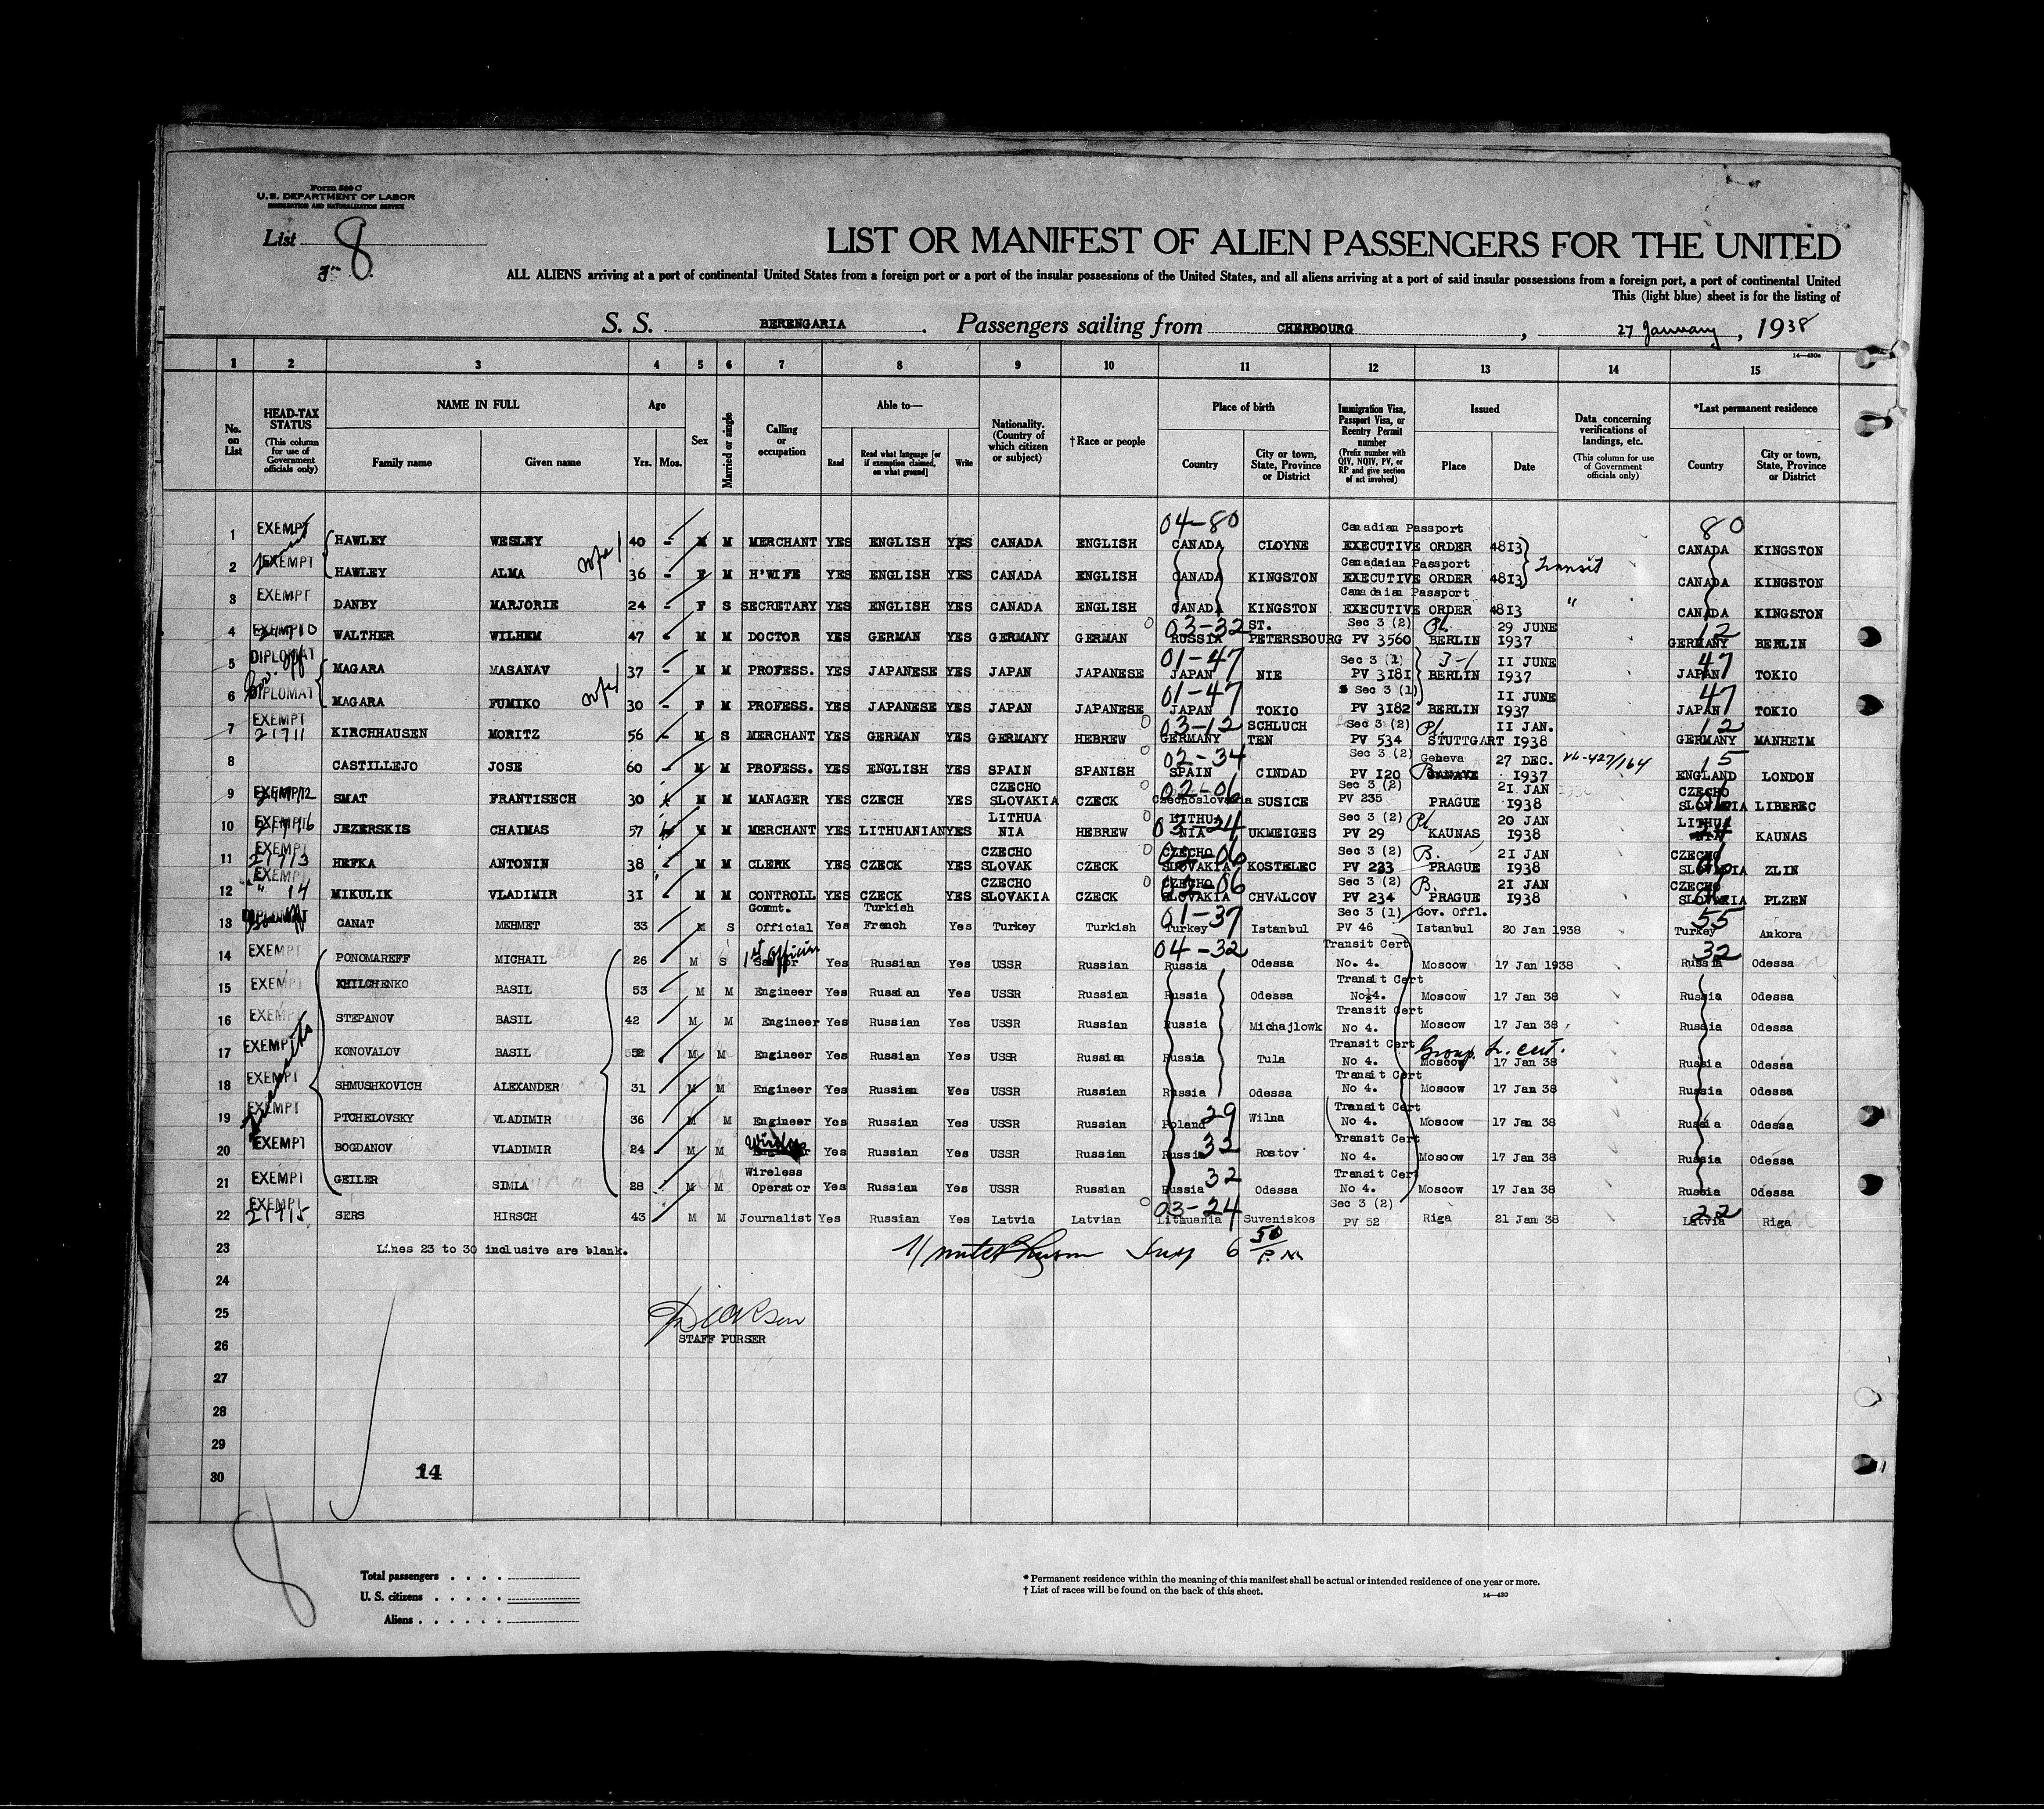 Form 500 C
U. S. DEPARTMENT OF LABOR
IMMIGRATION AND NATURALIZATION SERVICE
List 8
LIST OR MANIFEST OF ALIEN PASSENGERS FOR THE UNITED
ALL ALIENS arriving at a port of continental United States from a foreign port or a port of the insular possessions of the United States, and all aliens arriving at a port of said insular possessions from a foreign port, a port of continental United
This (light blue) sheet is for the listing of
S. S. BERENGARIA. Passengers sailing from CHERBOURG, 27 January, 1938
1 2 3 4 5 6 7 8 9 10 11 12 13 14 15
No. on List
HEAD-TAX STATUS (This column for use of Government officials only)
NAME IN FULL Family name Given name
Age Yrs. Mos.
Sex
Married or single
Calling or occupation
Able to— Read Read what language [or if exemption claimed, on what ground] Write
Nationality. (Country of which citizen or subject)
†Race or people
Place of birth Country City or town, State, Province or District
Immigration Visa, Passport Visa, or Reentry Permit number (Prefix number with QIV, NQIV, PV, or RP and give section of act involved)
Issued Place Date
Data concerning verifications of landings, etc. (This column for use of Government officials only)
*Last permanent residence Country City or town, State, Province or District
1 EXEMPT HAWLEY WESLEY 40 - M M MERCHANT YES ENGLISH YES CANADA ENGLISH 04-80 CANADA CLOYNE Canadian Passport EXECUTIVE ORDER 4813 80 CANADA KINGSTON
2 EXEMPT HAWLEY ALMA wife 36 - F M H'WIFE YES ENGLISH YES CANADA ENGLISH CANADA KINGSTON Canadaian Passport EXECUTIVE ORDER 4813 Transit CANADA KINGSTON
3 EXEMPT DANBY MARJORIE 24 - F S SECRETARY YES ENGLISH YES CANADA ENGLISH CANADA KINGSTON Canadaian Passport EXECUTIVE ORDER 4813 " CANADA KINGSTON
4 EXEMPT WALTHER WILHEM 47 - M M DOCTOR YES GERMAN YES GERMANY GERMAN 03-32 RUSSIA ST. PETERSBOURG Sec 3 (2) PV 3560 Pl. BERLIN 29 JUNE 1937 12 GERMANY BERLIN
5 DIPLOMAT MAGARA MASANAV 37 - M M PROFESS. YES JAPANESE YES JAPAN JAPANESE 01-47 JAPAN NIE Sec 3 (1) PV 3181 3-1 BERLIN 11 JUNE 1937 47 JAPAN TOKIO
6 DIPLOMAT MAGARA FUMIKO wife 30 - F M PROFESS. YES JAPANESE YES JAPAN JAPANESE 01-47 JAPAN TOKIO Sec 3 (1) PV 3182 BERLIN 11 JUNE 1937 47 JAPAN TOKIO
7 EXEMPT 21711 KIRCHHAUSEN MORITZ 56 - M S MERCHANT YES GERMAN YES GERMANY HEBREW 03-12 GERMANY SCHLUCH TEN Sec 3 (2) PV 534 Pl. STUTTGART 11 JAN. 1938 12 GERMANY MANHEIM
8 CASTILLEJO JOSE 60 - M M PROFESS. YES ENGLISH YES SPAIN SPANISH 02-34 SPAIN CINDAD Sec 3 (2) PV 120 Geneva 27 DEC. 1937 5 ENGLAND LONDON
9 EXEMPT SMAT FRANTISECH 30 M M MANAGER YES CZECH YES CZECHO SLOVAKIA CZECK 02-06 Czechoslovakia SUSICE Sec 3 (2) PV 235 PRAGUE 21 JAN 1938 CZECHO SLOVAKIA LIBEREC
10 EXEMPT JEZERSKIS CHAIMAS 57 M M MERCHANT YES LITHUANIAN YES LITHUA NIA HEBREW 03-24 LITHUA NIA UKMEIGES Sec 3 (2) PV 29 Pl KAUNAS 20 JAN 1938 24 LITHUA NIA KAUNAS
11 EXEMPT 21713 HEFKA ANTONIN 38 - M M CLERK YES CZECK YES CZECHO SLOVAK CZECK 02-06 CZECHO SLOVAKIA KOSTELEC Sec 3 (2) PV 233 B. PRAGUE 21 JAN 1938 06 CZECHO SLOVAKIA ZLIN
12 EXEMPT " 14 MIKULIK VLADIMIR 31 - M M CONTROLL YES CZECK YES CZECHO SLOVAKIA CZECK 02-06 CZECHO SLOVAKIA CHVALCOV Sec 3 (2) PV 234 B. PRAGUE 21 JAN 1938 06 CZECHO SLOVAKIA PLZEN
13 DIPLOMAT CANAT MEHMET 33 M S Gommt. Official Yes Turkish French Yes Turkey Turkish 01-37 Turkey Istanbul Sec 3 (1) PV 46 Gov. Offl. Istanbul 20 Jan 1938 55 Turkey Ankora
14 EXEMPT PONOMAREFF MICHAIL 26 M S 1st Officer Yes Russian Yes USSR Russian 04-32 Russia Odessa Transit Cert No. 4. Moscow 17 Jan 1938 32 Russia Odessa
15 EXEMPT KHILCHENKO BASIL 53 M M Engineer Yes Russian Yes USSR Russian Russia Odessa Transit Cert No 4. Moscow 17 Jan 38 Russia Odessa
16 EXEMPT STEPANOV BASIL 42 M M Engineer Yes Russian Yes USSR Russian Russia Michajlowk Transit Cert No 4. Moscow 17 Jan 38 Russia Odessa
17 EXEMPT KONOVALOV BASIL 52 M M Engineer Yes Russian Yes USSR Russian Russia Tula Transit Cert No 4. Group tr. cert. Moscow 17 Jan 38 Russia Odessa
18 EXEMPT SHMUSHKOVICH ALEXANDER 31 M M Engineer Yes Russian Yes USSR Russian Russia Odessa Transit Cert No 4. Moscow 17 Jan 38 Russia Odessa
19 EXEMPT PTCHELOVSKY VLADIMIR 36 M M Engineer Yes Russian Yes USSR Russian 29 Poland Wilna Transit Cert No 4. Moscow 17 Jan 38 Russia Odessa
20 EXEMPT BOGDANOV VLADIMIR 24 M M Yes Russian Yes USSR Russian 32 Russia Rostov Transit Cert No 4. Moscow 17 Jan 38 Russia Odessa
21 EXEMPT GEILER SIMLA 28 M M Wireless Operator Yes Russian Yes USSR Russian 32 Russia Odessa Transit Cert No 4. Moscow 17 Jan 38 Russia Odessa
22 EXEMPT 21715 SERS HIRSCH 43 M M Journalist Yes Russian Yes Latvia Latvian 03-24 Lithuania Suveniskos Sec 3 (2) PV 52 Riga 21 Jan 38 22 Latvia Riga
23 Lines 23 to 30 inclusive are blank. Insp 6 50 P. M.
24
25
STAFF PURSER
26
27
28
29
30 14
8
Total passengers
U. S. citizens
Aliens
* Permanent residence within the meaning of this manifest shall be actual or intended residence of one year or more.
† List of races will be found on the back of this sheet.
14—430